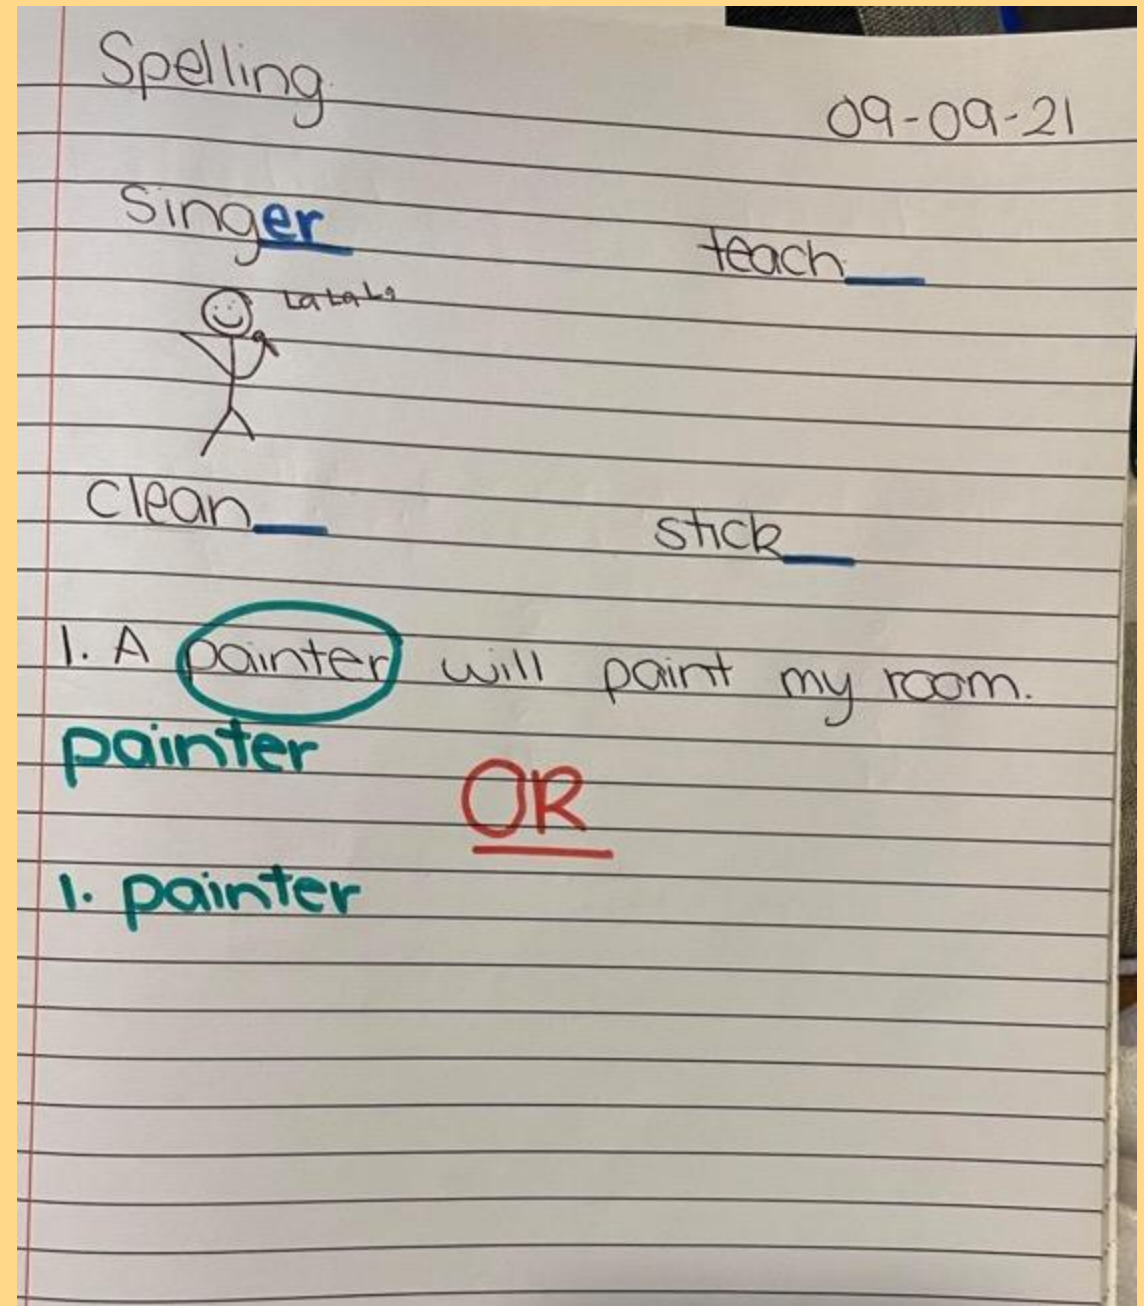 Spelling
09-09-21
Singer
teach__
La La La
clean__
stick__
1. A painter will paint my room.
painter
OR
1. painter